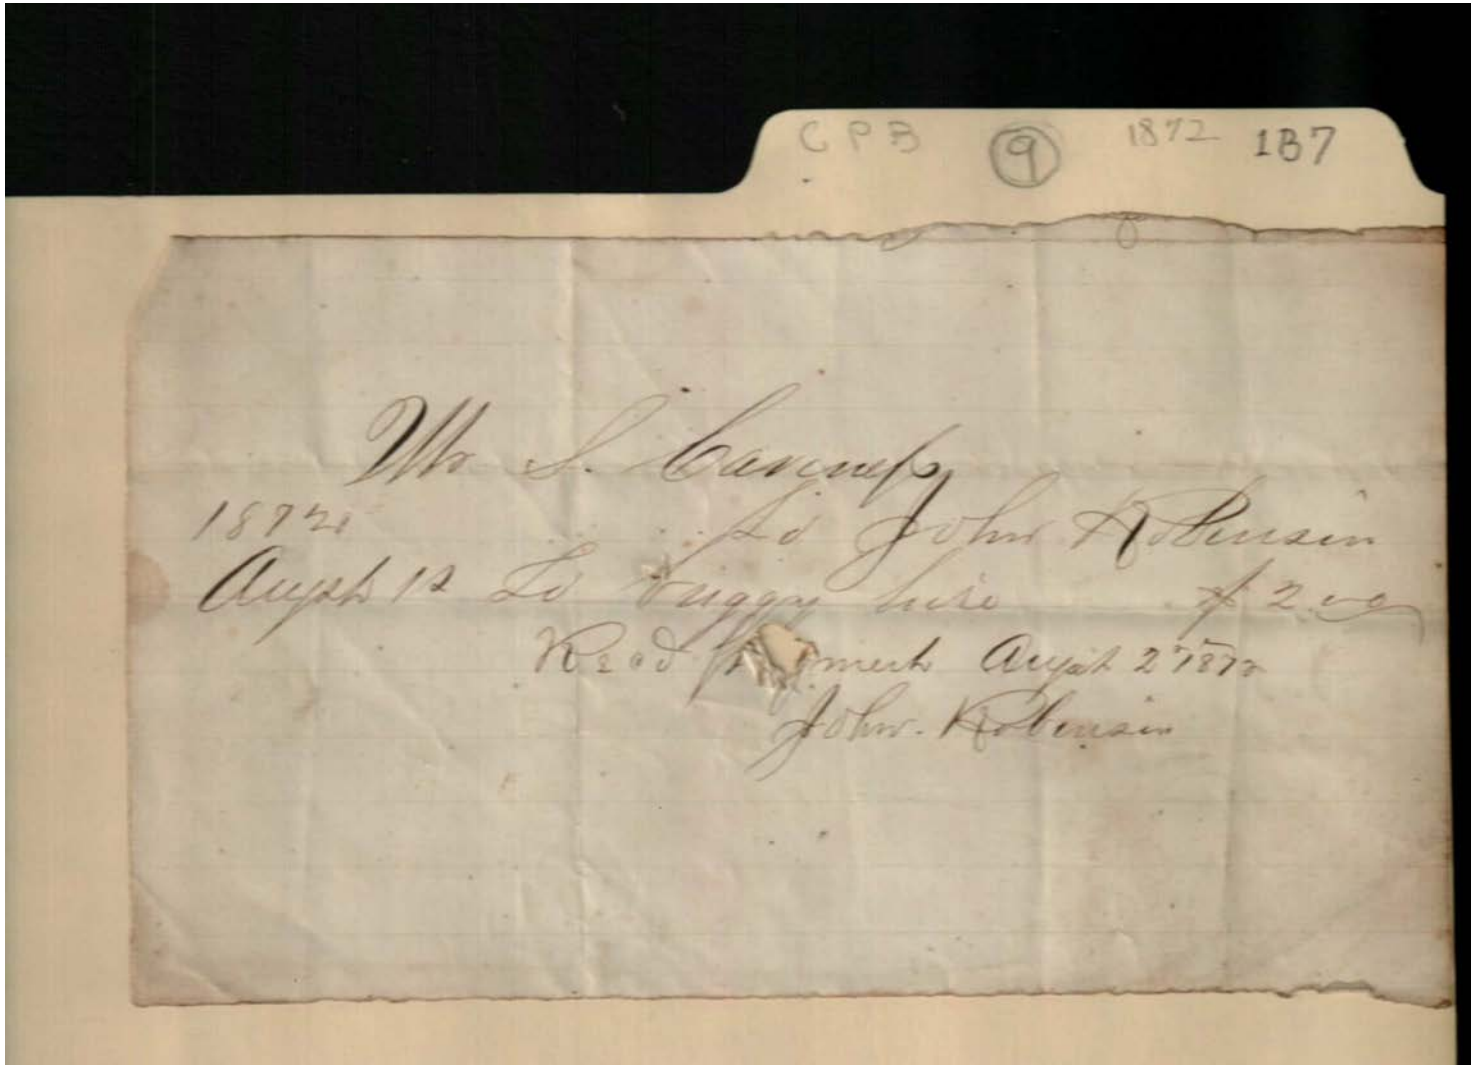 CPB 9 1872 1B7
Mr S. Caviness
1872 To John Robinson
Augst 12 To buggy hire $2.00
Recd ment Augst 2 1872
John Robinson